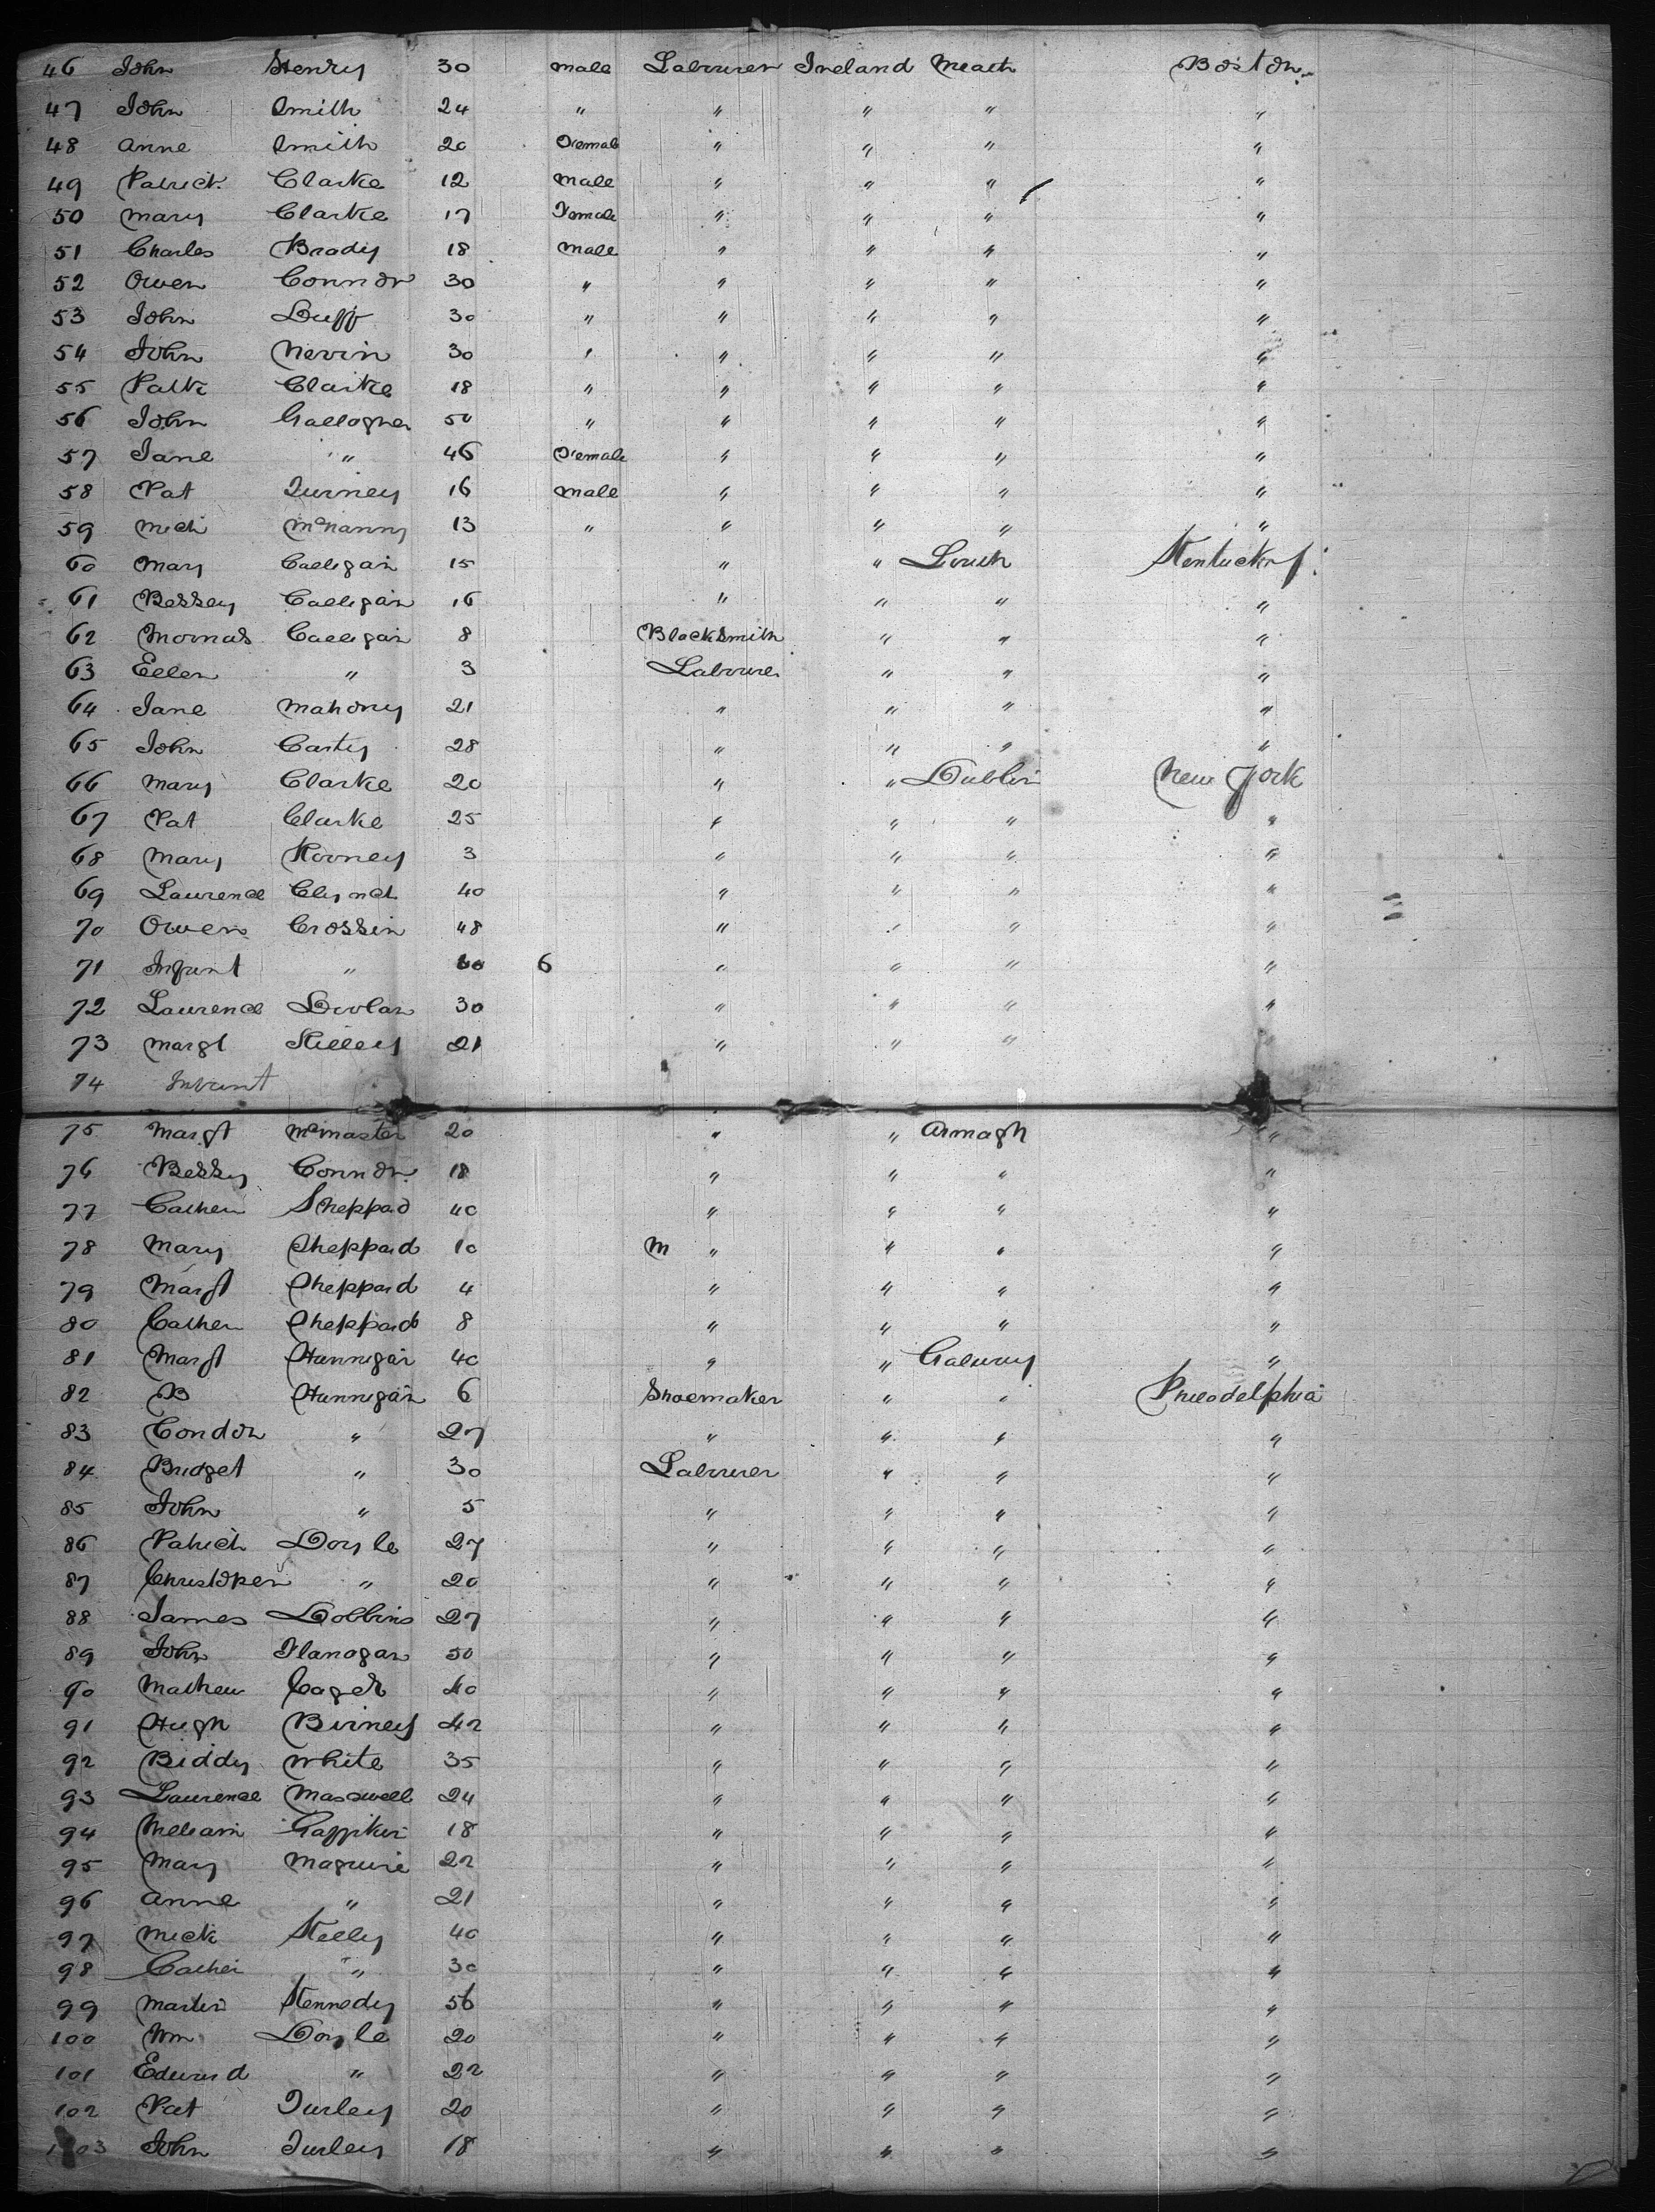 46 John Henry 30 male Labourer Ireland Meath Boston
47 John Smith 24 " " " " "
48 Anne Smith 20 Female " " " "
49 Patrick Clarke 12 male " " " "
50 Mary Clarke 17 Female " " " "
51 Charles Brady 18 male " " " "
52 Owen Connor 30 " " " " "
53 John Duff 30 " " " " "
54 John Nevin 30 " " " " "
55 Patk Clarke 18 " " " " "
56 John Gallogher 50 " " " " "
57 Jane " 46 Female " " " "
58 Pat Turney 16 male " " " "
59 Mich McNanny 13 " " " " "
60 Mary Calligan 15 " " Louth Kentucky
61 Bessey Calligan 16 " " " "
62 Thomas Calligan 8 BlackSmith " " "
63 Ellen " 3 Labourer " " "
64 Jane Mahony 21 " " " "
65 John Carty 28 " " " "
66 Mary Clarke 20 " " Dublin New York
67 Pat Clarke 25 " " " "
68 Mary Rooney 3 " " " "
69 Laurence Clynch 40 " " " "
70 Owen Crossin 48 " " " "
71 Infant " 6 " " " "
72 Laurence Dolan 30 " " " "
73 Margt Kelley 21 " " "
74 Infant
75 Margt McMaster 20 " " Armagh "
76 Bessy Connor 18 " " " "
77 Cathen Sheppard 40 " " " "
78 Mary Sheppard 10 M " " " "
79 Margt Sheppard 4 " " " "
80 Cathen Sheppard 8 " " " "
81 Margt Hannigan 40 " " Galway "
82 B Hannigan 6 Shoemaker " " Philadelphia
83 Condon " 27 " " " "
84 Bridget " 30 Labourer " " "
85 John " 5 " " " "
86 Patrick Doyle 27 " " " "
87 Christopher " 20 " " " "
88 James Dobbins 27 " " " "
89 John Flanogan 50 " " " "
90 Mathew 40 " " " "
91 Hugh Birney 42 " " " "
92 Biddy White 35 " " " "
93 Laurence Maxwell 24 " " " "
94 William 18 " " " "
95 Mary Maguire 22 " " " "
96 Anne " 21 " " " "
97 Mick Kelly 40 " " " "
98 Cather " 30 " " " "
99 Martin Kennedy 56 " " " "
100 Wm Doyle 20 " " " "
101 Edward " 22 " " " "
102 Pat Turley 20 " " " "
103 John Turley 18 " " " "